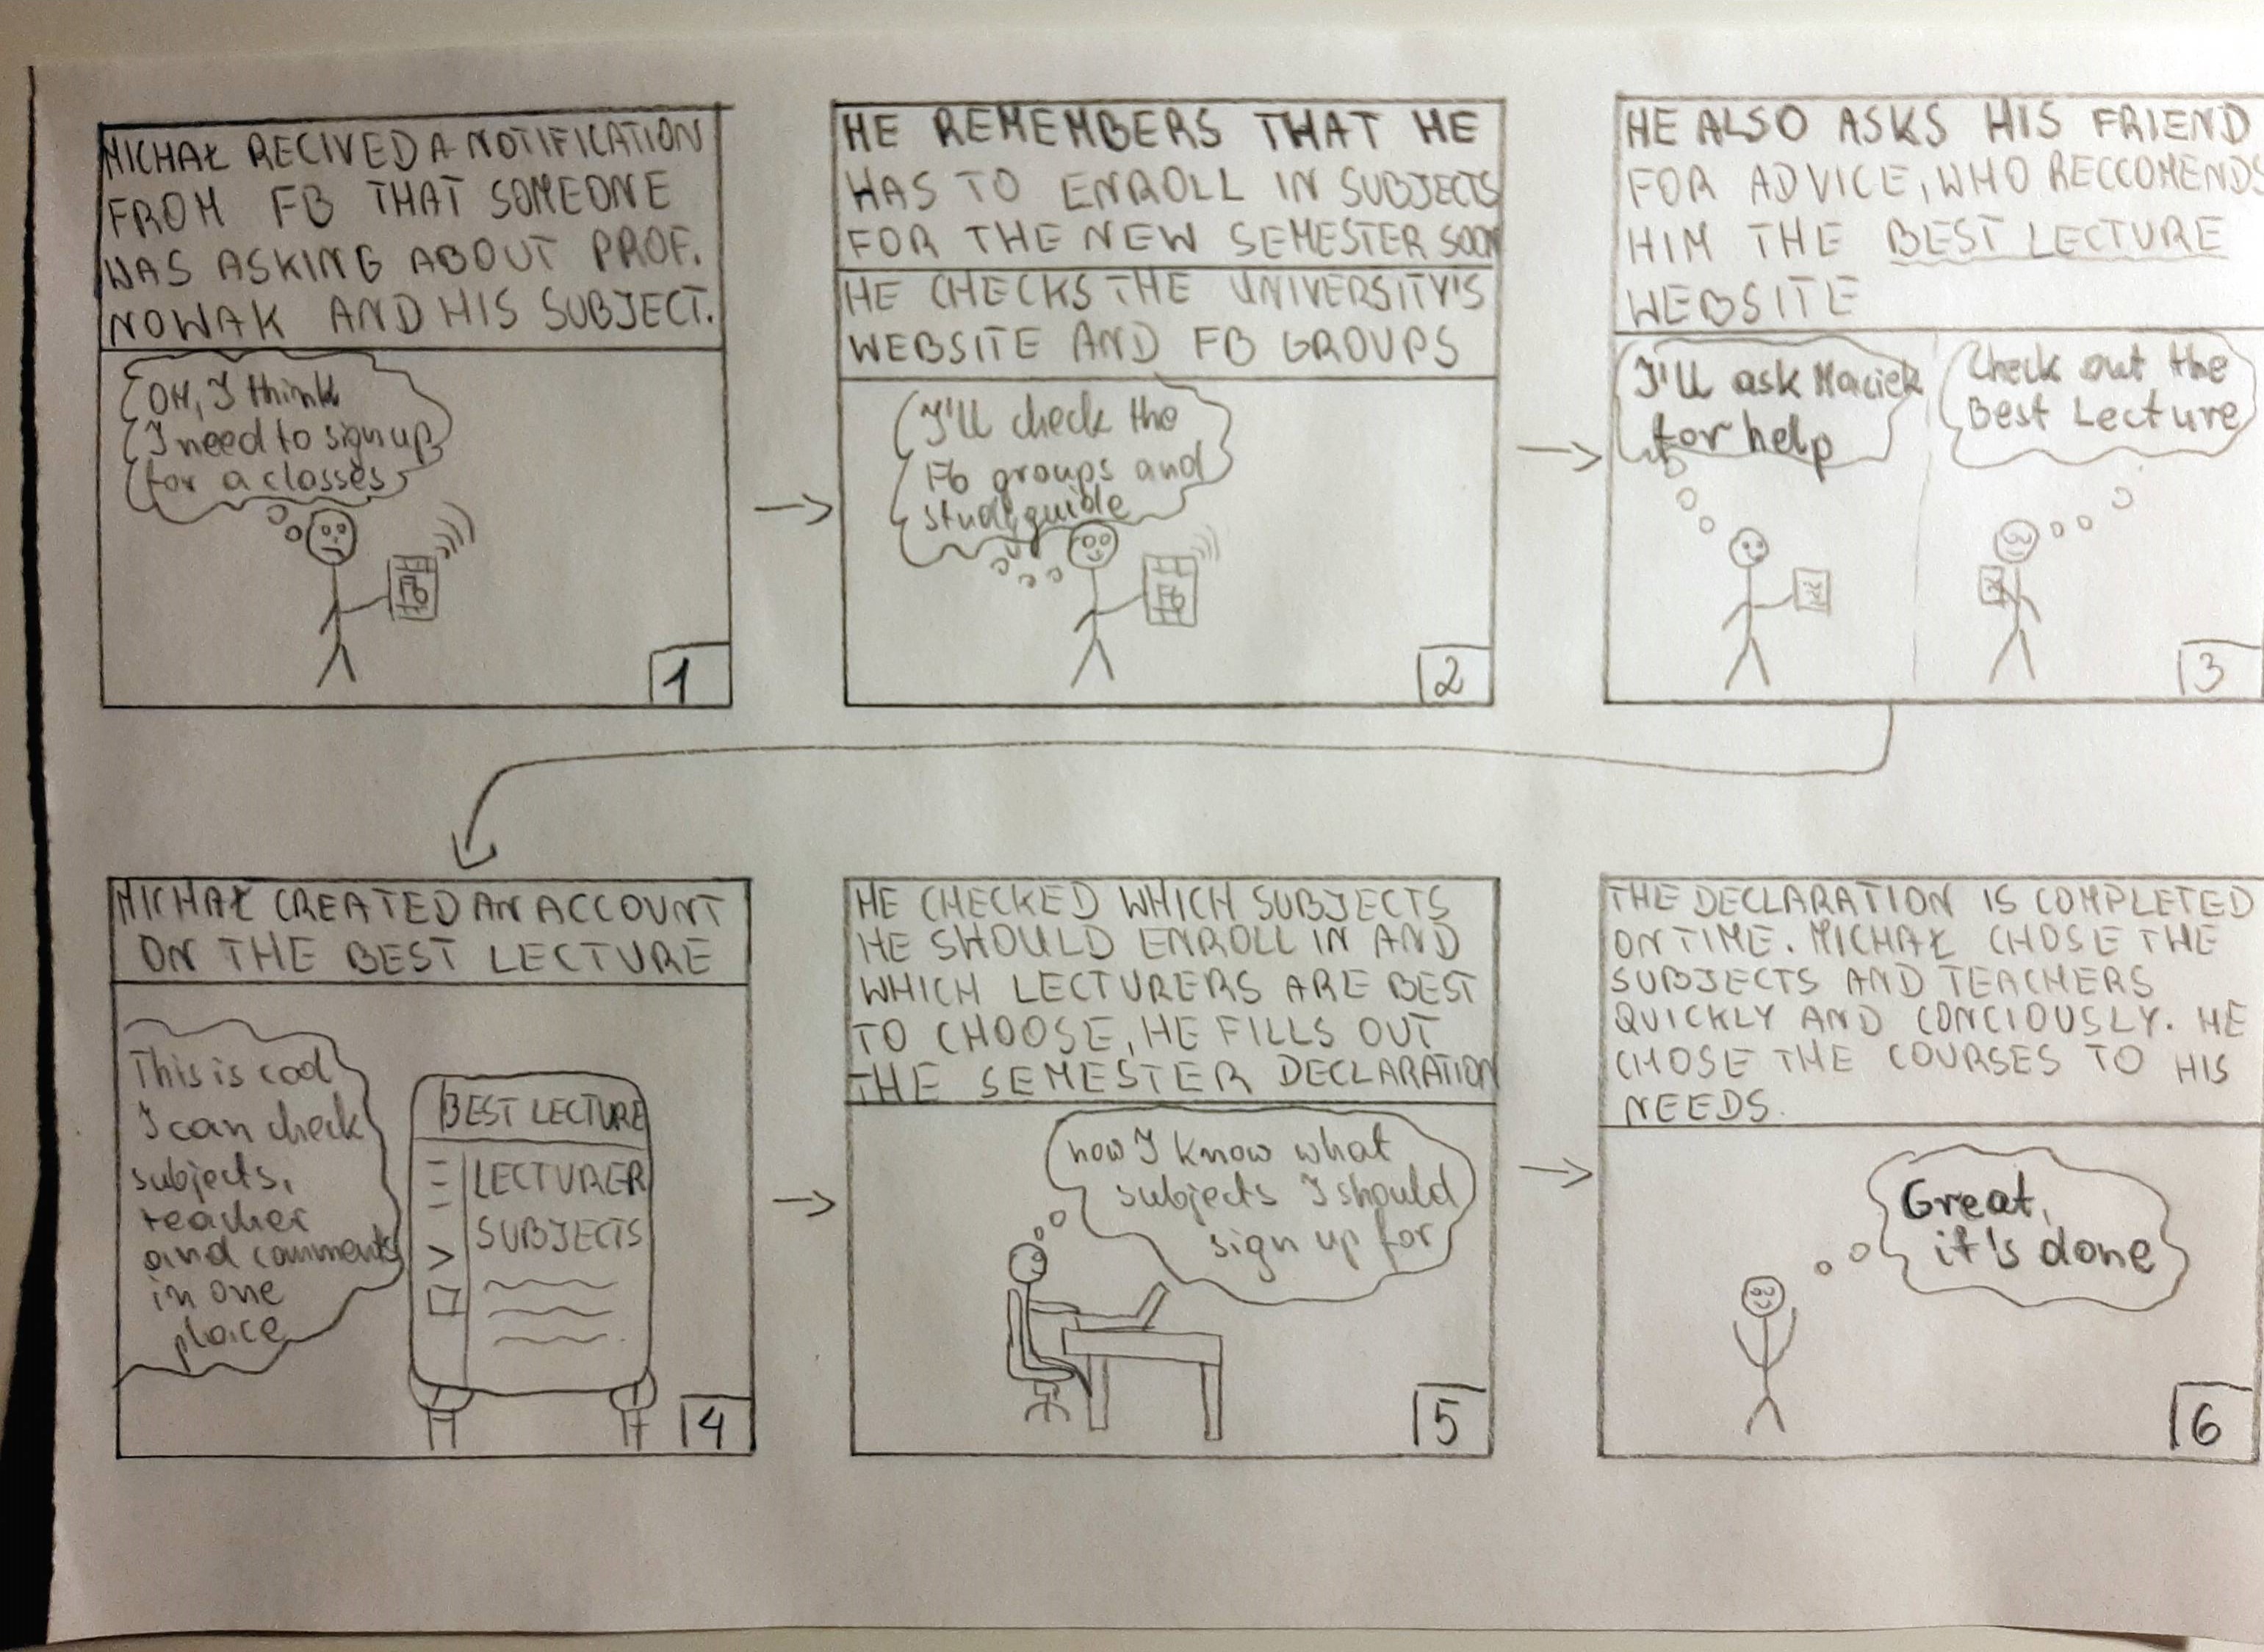 MICHAŁ RECIVED A NOTIFICATION
FROM FB THAT SOMEONE
WAS ASKING ABOUT PROF.
NOWAK AND HIS SUBJECT.
OH, I think
I need to sign up
for a classes
Fb
1
HE REMEMBERS THAT HE
HAS TO ENROLL IN SUBJECTS
FOR THE NEW SEMESTER SOON
HE CHECKS THE UNIVERSITY'S
WEBSITE AND FB GROUPS
I'll check the
Fb groups and
study guide
Fb
2
HE ALSO ASKS HIS FRIEND
FOR ADVICE, WHO RECCOMENDS
HIM THE BEST LECTURE
WEBSITE
I'll ask Maciek
for help
Check out the
Best Lecture
3
MICHAŁ CREATED AN ACCOUNT
ON THE BEST LECTURE
This is cool
I can check
subjects,
teacher
and comments
in one
place
BEST LECTURE
LECTURER
SUBJECTS
4
HE CHECKED WHICH SUBJECTS
HE SHOULD ENROLL IN AND
WHICH LECTURERS ARE BEST
TO CHOOSE, HE FILLS OUT
THE SEMESTER DECLARATION
now I know what
subjects I should
sign up for
5
THE DECLARATION IS COMPLETED
ON TIME. MICHAŁ CHOSE THE
SUBJECTS AND TEACHERS
QUICKLY AND CONCIOUSLY. HE
CHOSE THE COURSES TO HIS
NEEDS.
Great,
it's done
6